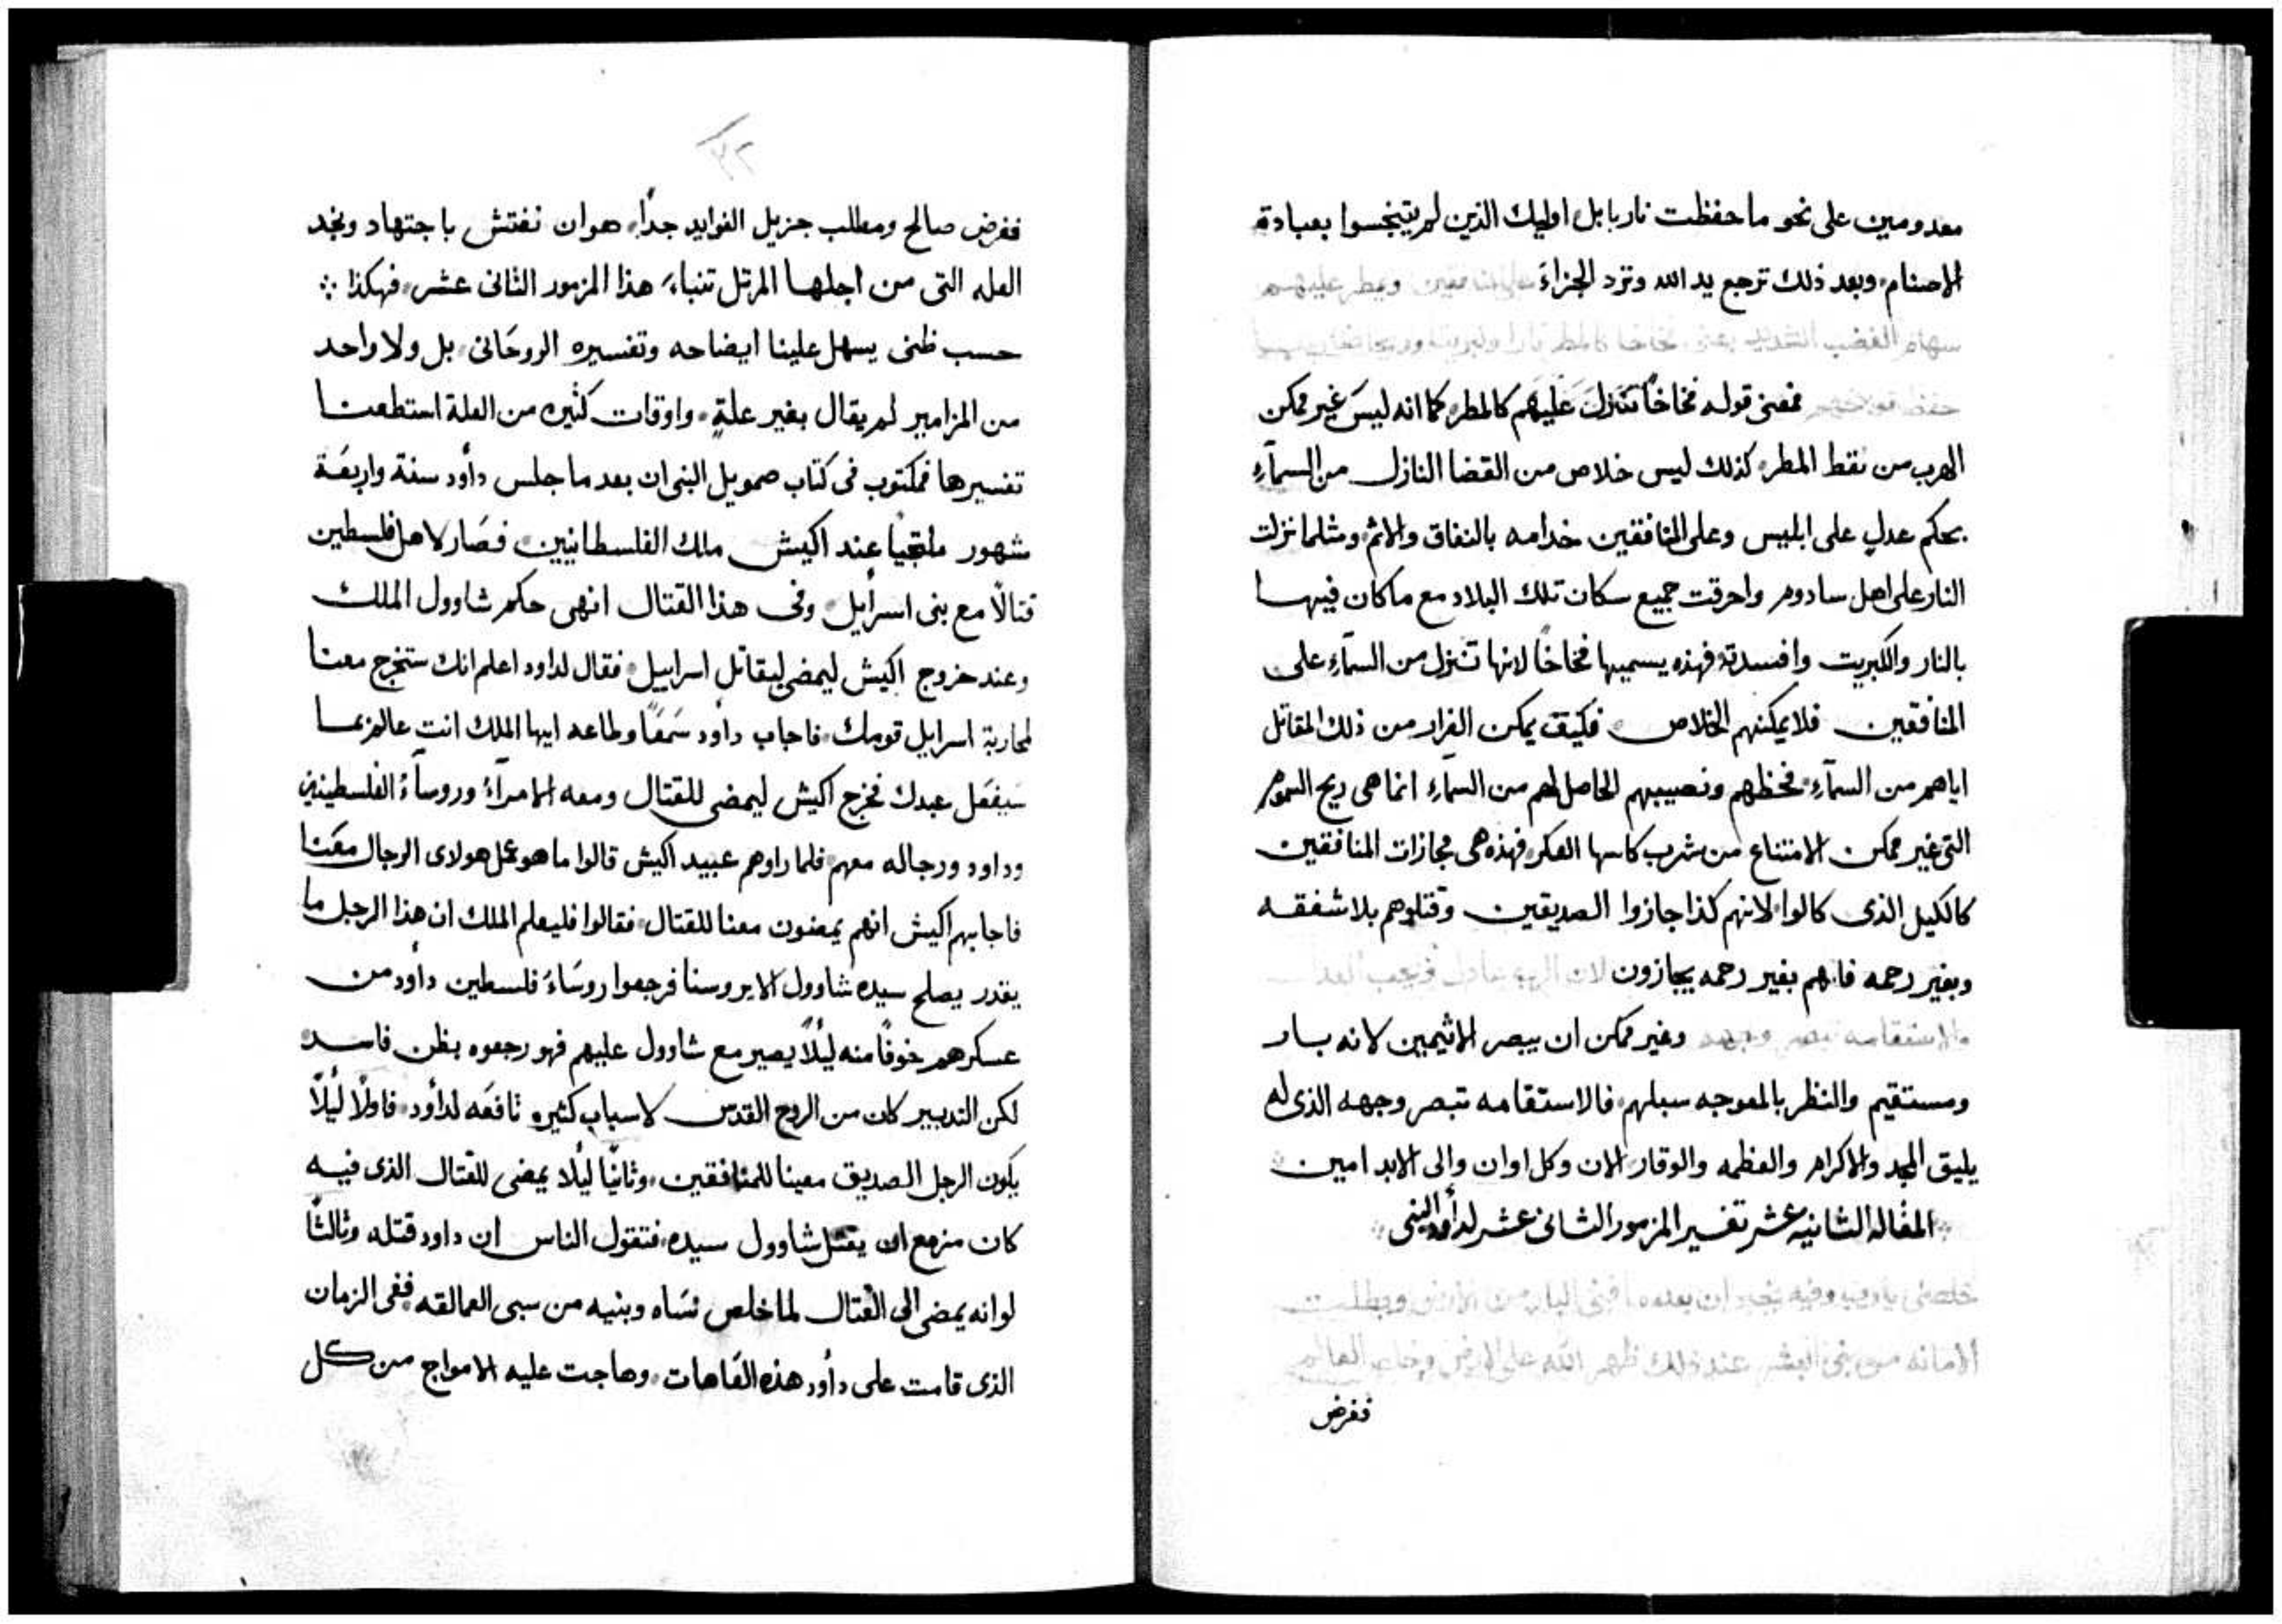 معدومين على نحو ما حفظت نار بابل اوليك الذين لم يتنجسوا بعبادة
الاصنام وبعد ذلك ترجع يد الله وترد الجزاءَ على المنافقين ويمطر عليهم
سهام الغضب الشديد
فمعنى قوله فخاخاً تنزل عليهم كالمطر كما انه ليسَ غير ممكن
الهرب من نقط المطر كذلك ليس خلاص من القضا النازل من السمآءِ
بحكم عدلٍ على ابليس وعلى المنافقين خدامه بالنفاق والاثم ومثلما نزلت
النار على اهل سادوم واحرقت جميع سكان تلك البلاد مع ما كان فيها
بالنار والكبريت وافسدته فهذه يسميها فخاخًا لانها تنزل من السمآءِ على
المنافقين فلا يمكنهم الخلاص فكيف يمكن الفرار من ذلك المقاتل
اياهم من السمآءِ فحظهم ونصيبهم الحاصل لهم من السمآءِ انما هى ريح السموم
التى غير ممكن الامتناع من شرب كاسها العكر فهذه هى مجازات المنافقين
كالكيل الذى كالوا لانهم كذا جازوا الصديقين وقتلوهم بلا شفقه
وبغير رحمه فانهم بغير رحمه يجازون لان الرب عادل ويحب العدل
والاستقامه تبصر وجهه وغير ممكن ان يبصر الاثيمين لانه بار
ومستقيم والنظر بالمعوجه سبلهم فالاستقامه تبصر وجهه الذى له
يليق المجد والاكرام والعظمه والوقار الان وكل اوان والى الابد امين
المقاله الثانيه عشر تفسير المزمور الثانى عشر لدأود النبى
خلصنى يا رب وفيه يخبر ان بعدما فنى البار من الارض وبطلت
الامانه من بنى البشر عند ذلك ظهر الله على الارض وخلص العالم
ففرض
٢٢
ففرض صالح ومطلب جزيل الفوايد جداً هو ان نفتش باجتهاد ونجد
العله التى من اجلها المرتل تنباءَ هذا المزمور الثانى عشر فهكذا
حسب ظنى يسهل علينا ايضاحه وتفسيره الروحَانى بل ولا واحد
من المزامير لم يقال بغير علةٍ واوقات كثيره من العلة استطعنا
تفسيرها فمكتوب فى كتاب صمويل النبى ان بعد ما جلس دأود سنة واربعَة
شهور ملتجيًا عند اكيش ملك الفلسطانيين فصَار لاهل فلسطين
قتالًا مع بنى اسرأيل وفى هذا القتال انهى حكم شاوول الملك
وعند خروج اكيش ليمضى ليقاتل اسراييل فقال لداود اعلم انك ستخرج معنا
لمحاربة اسرايل قومك فاجاب دأود سَمعًا وطاعه ايها الملك انت عالم بما
سَيفعَل عبدك فخرج اكيش ليمضى للقتال ومعه الامرآءُ وروسآءُ الفلسطينين
وداود ورجاله معهم فلما راوهم عبيد اكيش قالوا ما هو عمل هولاى الرجال معَنا
فاجابهم اكيش انهم يمضون معنا للقتال فقالوا فليعلم الملك ان هذا الرجل ما
يقدر يصلح سيده شاوول الا بروسنا فرجعوا روسَاءَ فلسطين دأود من
عسكرهم خوفًا منه ليلًا يصير مع شاوول عليهم فهو رجعوه بظن فاسد
لكن التدبير كان من الروح القدس لاسباب كثيره نافعَه لدأود فاولًا ليلًا
يكون الرجل الصديق معينا للمنافقين وثانيًا ليلا يمضى للقتال الذى فيه
كان مزمع ان يقتل شاوول سيده فتقول الناس ان داود قتله وثالثًا
لو انه يمضى الى القتال لما خلص نسَاه وبنيه من سبى العمالقه ففى الزمان
الذى قامت على دأود هذه العَاهات وهاجت عليه الامواج من كل